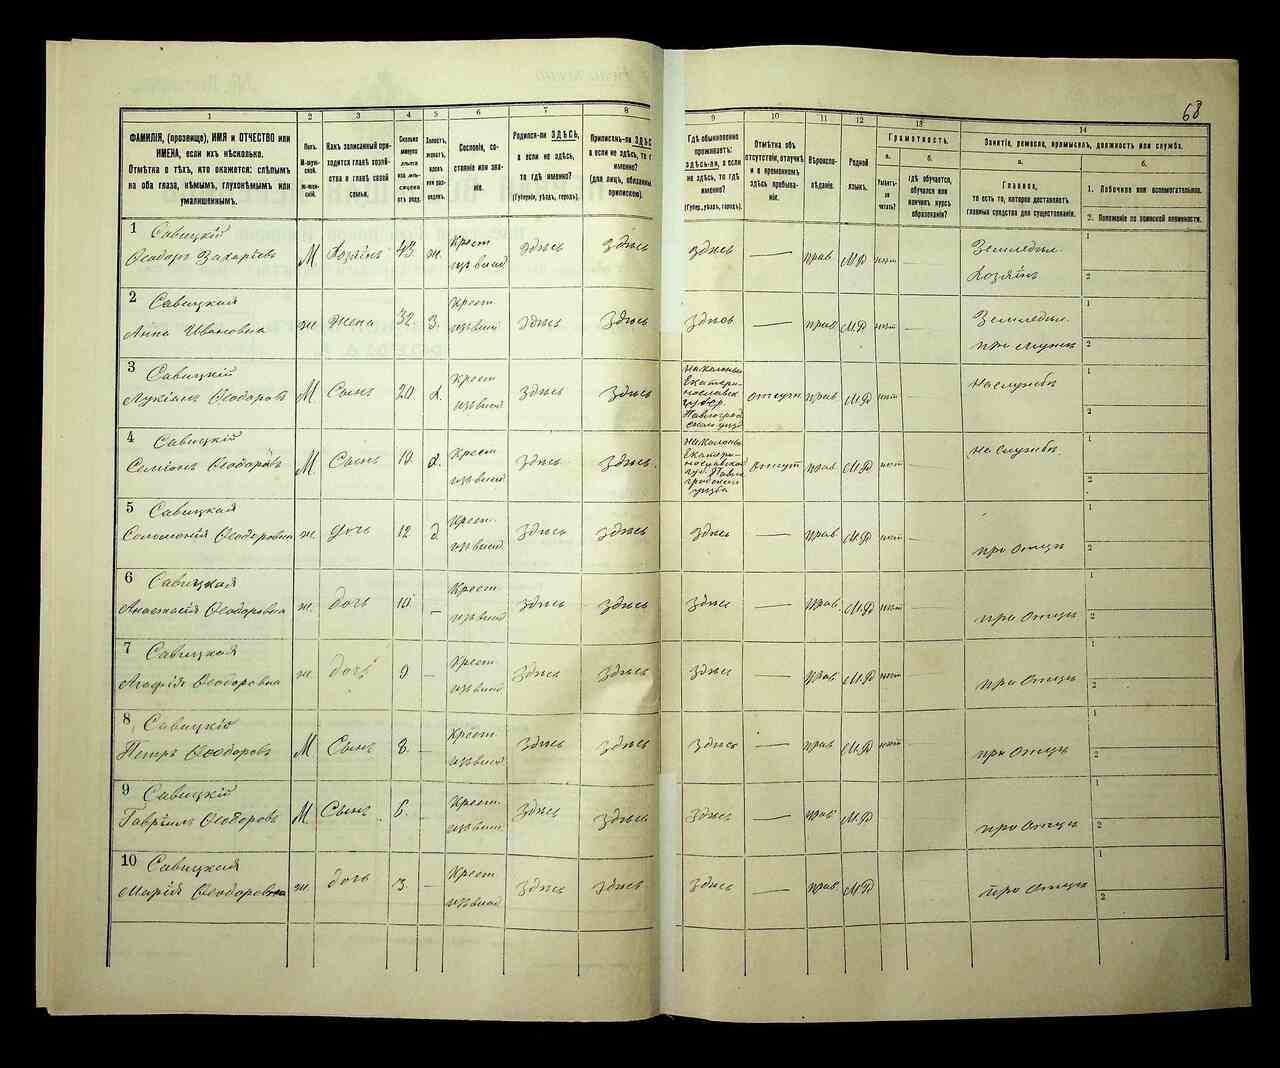 68
1
2
3
4
5
6
7
8
9
10
11
12
13
14
ФАМИЛІЯ, (прозвище), ИМЯ и ОТЧЕСТВО или
ИМЕНА, если ихъ нѣсколько.
Отмѣтка о тѣхъ, кто окажется: слѣпымъ
на оба глаза, нѣмымъ, глухонѣмымъ или
умалишеннымъ.
Полъ.
Какъ записанный при-
ходится главѣ хозяй-
ства и главѣ своей
семьи.
Сколько
минуло
лѣтъ
отъ роду.
Сословіе, со-
стояніе или зва-
ніе.
Родился-ли ЗДѢСЬ,
а если не здѣсь,
то гдѣ именно?
(Губернія, уѣздъ, городъ).
Приписанъ-ли ЗДѢС
а если не здѣсь, то г
именно?
(для лицъ, обязанны
припискою).
Гдѣ обыкновенно
проживаетъ:
здѣсь-ли, а если
не здѣсь, то гдѣ
именно?
(Губер., уѣздъ, городъ).
Отмѣтка объ
отсутствіи, отлучкѣ
и о временномъ
здѣсь пребыва-
ніи.
Вѣроиспо-
вѣданіе.
Родной
языкъ.
Грамотность.
а.
б.
Умѣетъ-
ли
читать?
гдѣ обучается,
обучался или
кончилъ курсъ
образованія?
Занятіе, ремесло, промыселъ, должность или служба.
а.
б.
Главное,
то есть то, которое доставляетъ
главныя средства для существованія.
1. Побочное или вспомогательное.
2. Положеніе по воинской повинности.
1 Савицкій
Ѳеодоръ Захаріевъ М Хозяинъ 43 ж. Крест. здѣсь здѣсь здѣсь — прав М.Р нѣт Земледѣл. 1
Хозяинъ 2
2 Савицкая
Анна Ивановна ж. жена 32. з. Крест. здѣсь здѣсь здѣсь — прав М.Р нѣт Земледѣл. 1
при мужѣ 2
3 Савицкій
Лукіанъ Ѳеодоровъ М Сынъ 20 х. Крест здѣсь здѣсь
Екатери-
нославск
губер.
Павлоград
отлуч прав М.Р нѣт На службѣ 1
2
4 Савицкій
Семіонъ Ѳеодоровъ М Сынъ Крест здѣсь здѣсь.
Екатери-
нославской
губ. Павло
градскій
уѣзда
отлуч прав М.Р нѣт На службѣ 1
2
5 Савицкая
Соломонія Ѳеодоровна ж. дочь 12 д Крест. здѣсь здѣсь здѣсь — прав М.Р нѣт при Отцѣ 1
2
6 Савицкая
Анастасія Ѳеодоровна ж. дочь 10 — Крест здѣсь здѣсь здѣс — прав. М.Р нѣт при Отцѣ 1
2
7 Савицкая
Агафія Ѳеодоровна ж. дочь 9 — Крест здѣсь здѣсь здѣс — прав. М.Р нѣт при Отцѣ 1
2
8 Савицкій
Петръ Ѳеодоровъ М Сынъ 8. — Крест. здѣсь здѣсь здѣсь — прав М.Р нѣт при Отцѣ 1
2
9 Савицкій
Гавріилъ Ѳеодоровъ М. Сынъ 6. — Крест. здѣсь здѣсь здѣсь — прав М.Р при Отцѣ 1
2
10 Савицкая
Марія Ѳеодоровна ж. дочь 3. — Крест здѣсь здѣсь здѣсь — прав. М.Р при Отцѣ 1
2